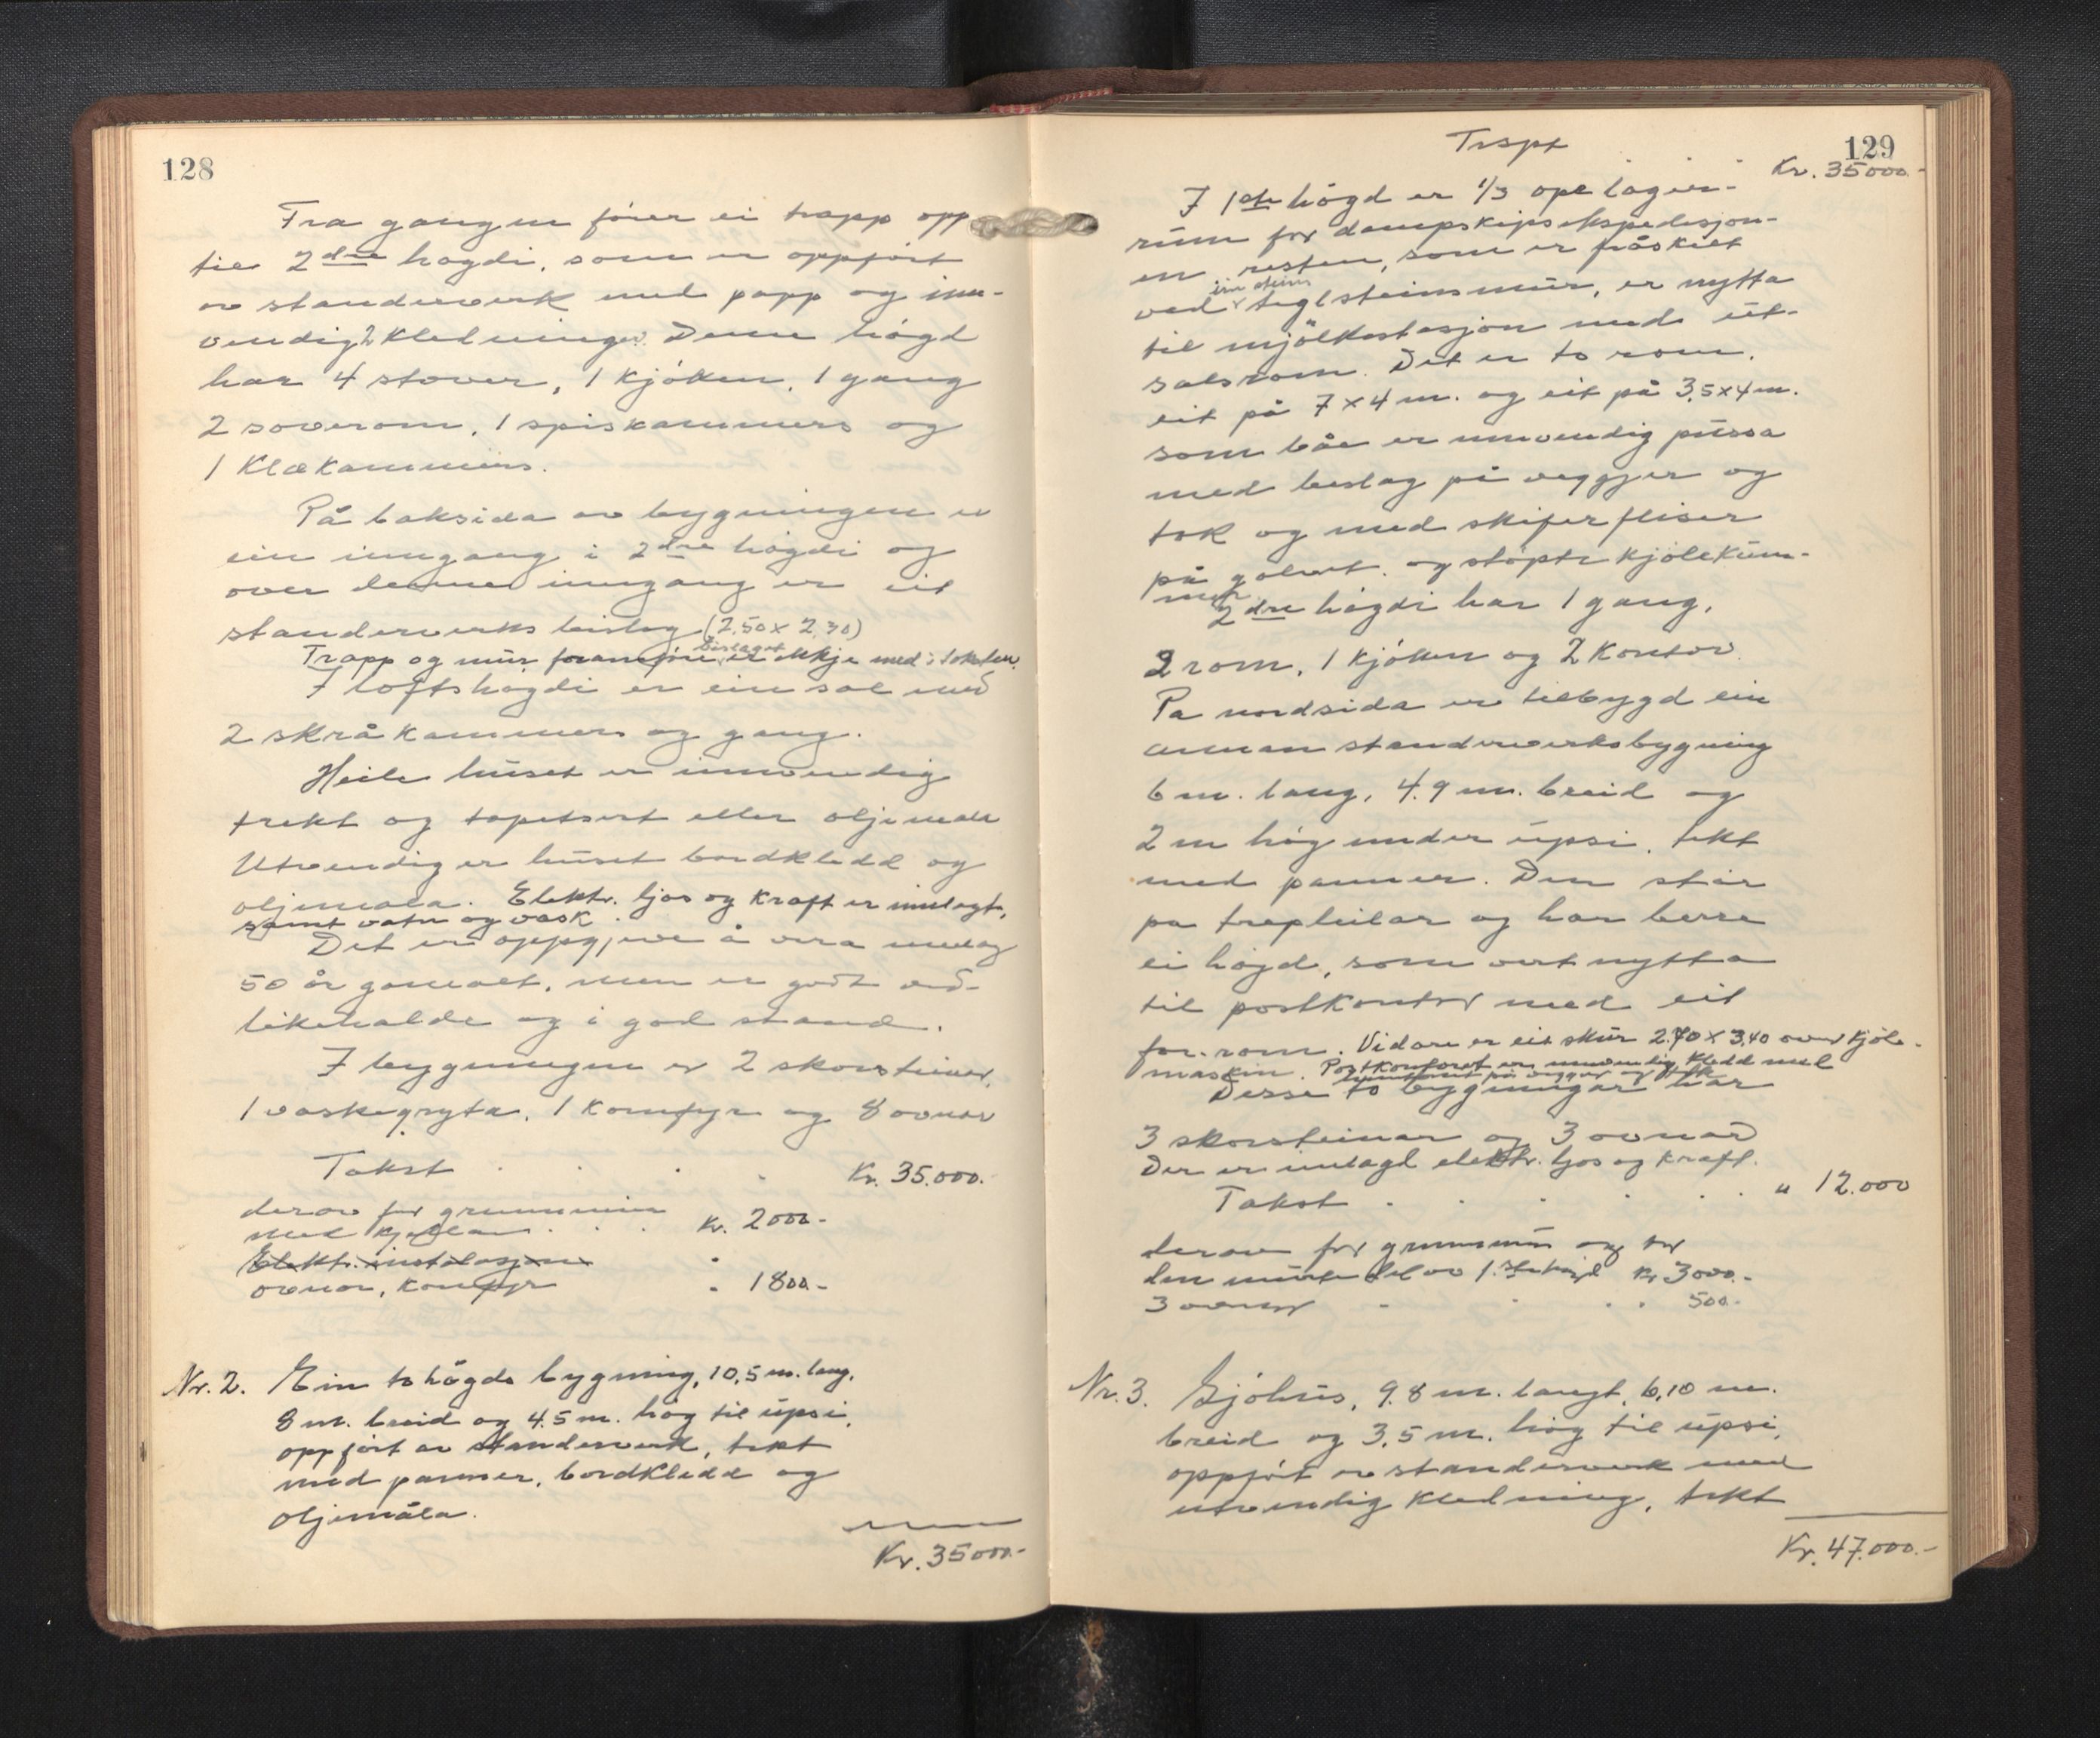 128
Fra gangen fører ei trapp opp
til 2dre høgdi, som er oppført
av standerverk med papp og inn-
vendig 2 kledninger. Denne høgd
har 4 stover, 1 kjøken, 1 gang
2 soverom, 1 spiskammers og
1 klækammers.
På baksida av bygningen er
ein inngang i 2dre høgdi og
over denne inngang er eit
standerverks bislag (2,50 x 2,30)
Trapp og mur framføre bislaget er ikkje med i taksten.
I loftshøgdi er ein sal med
2 skråkammers og gang.
Heile huset er innvendig
trekt og tapetsert eller oljemåla
Utvendig er huset bordkledd og
oljemåla. Elektr. ljos og kraft er innlagt,
samt vatn og vask.
Det er oppgjeve å vera innlag
50 år gamalt, men er godt ved-
likehalde og i god stand.
I bygningen er 2 skorsteiner,
1 vaskegryta, 1 komfyr og 8 ovnar
Takst . . . . Kr. 35.000.
derav for grunnmur
med kjellar . . . Kr. 2000.-
Elektr. instalasjon
ovnar, komfyr . 1800.-
Nr. 2. Ein to høgds bygning, 10,5 m. lang,
8 m. breid og 4.5 m. høg til upsi,
oppført av standerverk, tekt
med panner, bordkledd og
oljemåla.
Kr. 35000.-
129
Trspt
Kr. 35000.-
I 1ste høgd er 1/3 ope lager-
rum for dampskipsekspedisjon-
en resten, som er fråskilt
ved ein steins teglsteinsmur, er nytta
til mjölkestasjon med ut-
salsrom. Det er to rom,
eit på 7 x 4 m. og eit på 3,5 x 4 m.
som båe er innvendig pussa
med beslag på veggjer og
tak og med skiferfliser
på golvet. og støpte kjølekum-
mer.
2dre høgdi har 1 gang,
2 rom, 1 kjøken og 2 kontor.
Pa nordsida er tilbygd ein
annan standerverksbygning
6 m. lang, 4.9 m. breid og
2 m høg under upsi, tekt
med panner. Den står
pa trepeilar og har berre
ei høgd, som vert nytta
til postkontor med eit
for-rom. Vidare er eit skur 2.70 x 3,40 over kjøle-
maskin. Postkontoret er innvendig kledd med
på vegger og tak
Desse to bygningar har
3 skorsteinar og 3 ovnar
Der er innlagt elektr. ljos og kraft.
Takst . . . . . " 12.000
derav for grunnmur og for
den murte del av 1.ste høgd Kr 3000.-
3 ovnar . . . . 500.-
Nr. 3. Sjøhus, 9.8 m. langt, 6,10 m.
breid og 3,5 m. høg til upsi,
oppført av standerverk med
utvendig kledning, tekt
Kr. 47.000.-